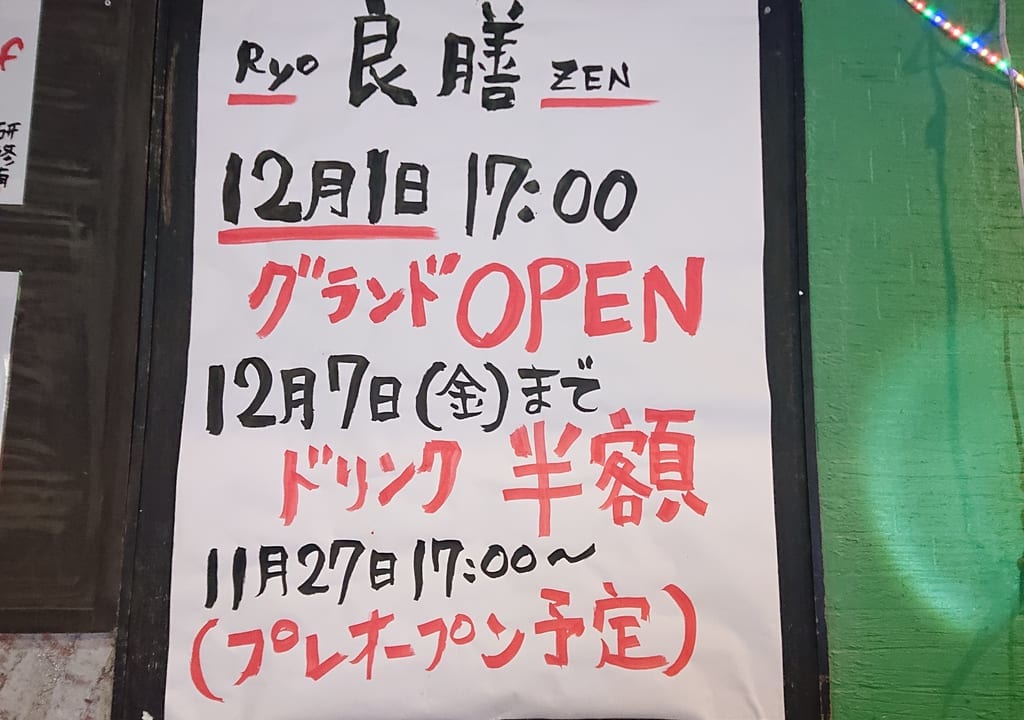 Ryo 良膳 ZEN
12月1日 17:00
グランドOPEN
12月7日(金)まで
ドリンク 半額
11月27日17:00〜
(プレオープン予定)
f
研修